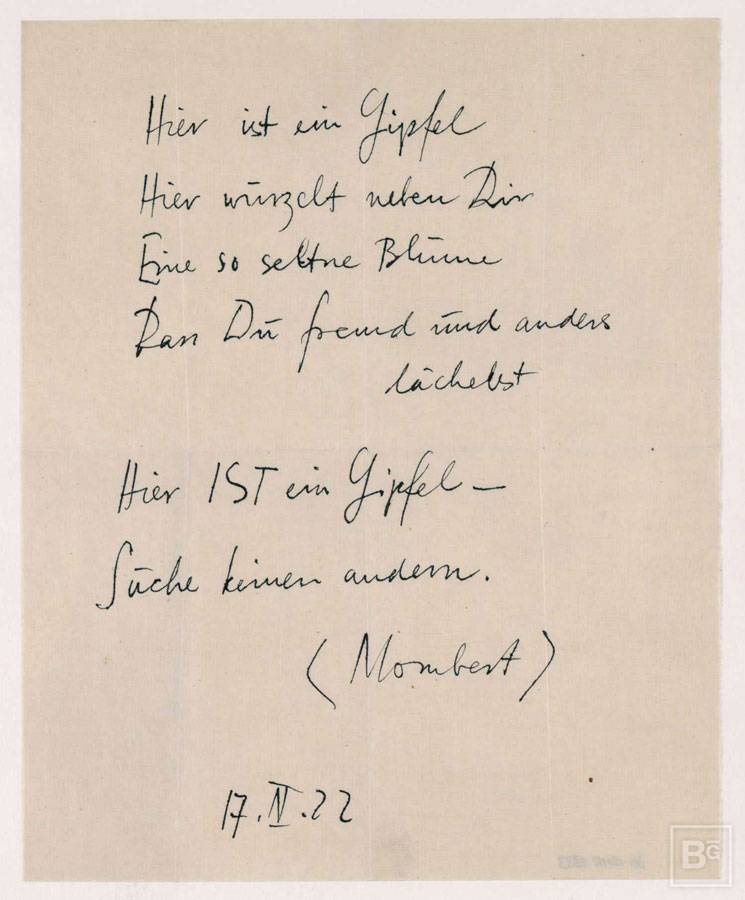 Hier ist ein Gipfel
Hier wurzelt neben Dir
Eine so seltne Blume
Dass Du fremd und anders
lächelst
Hier IST ein Gipfel –
Suche keinen andern.
(Mombert)
17. IV. 22
BG